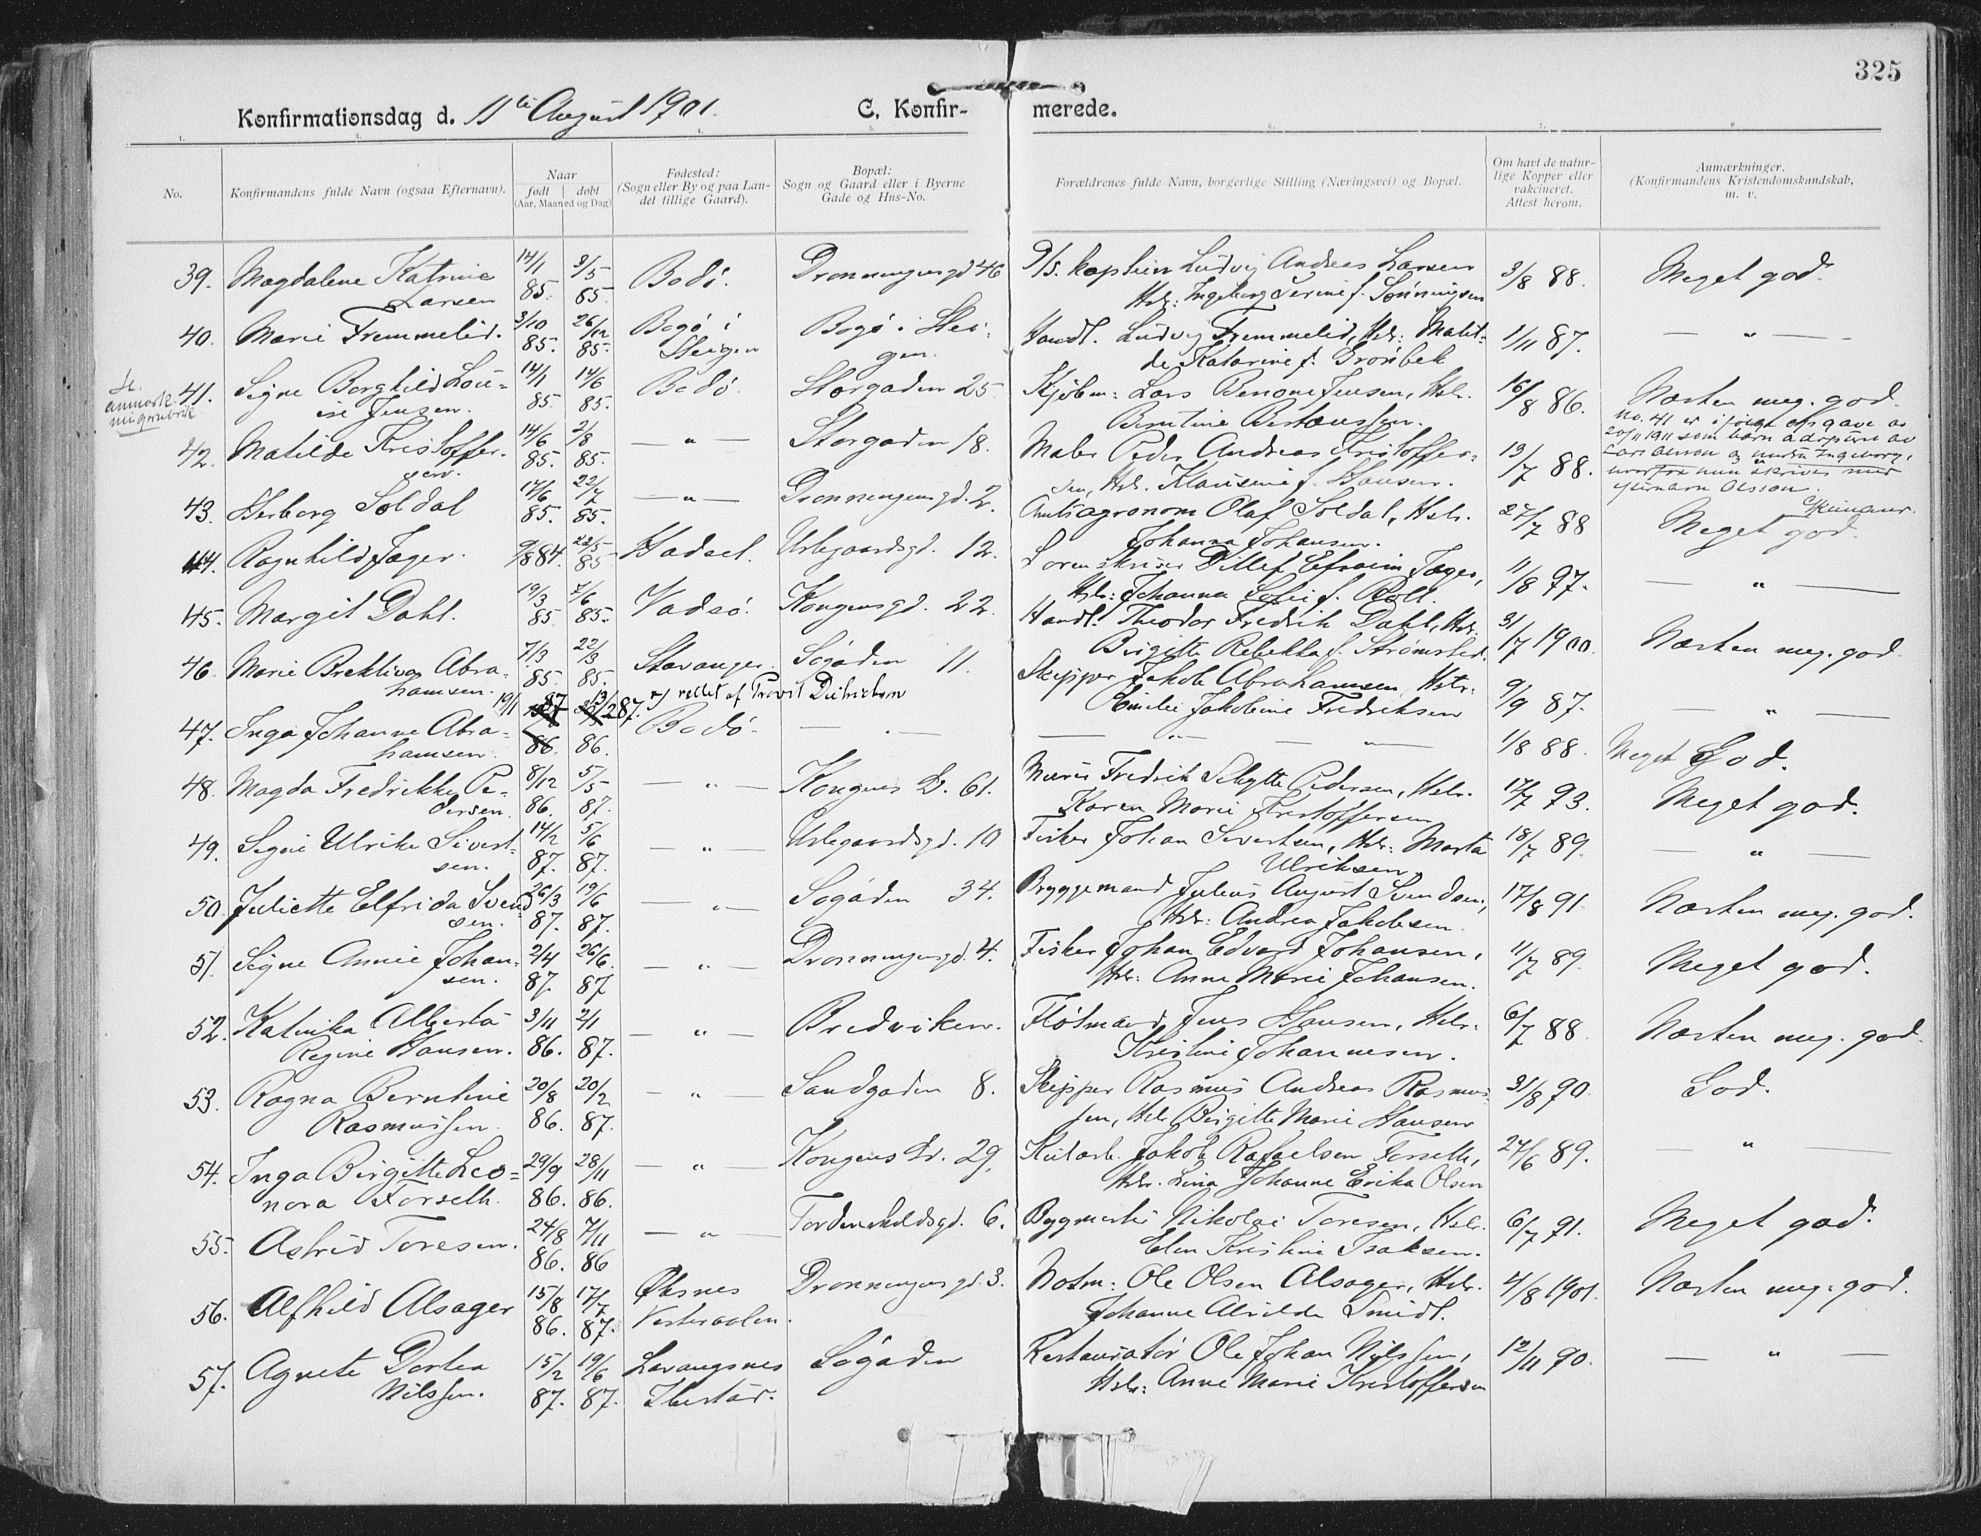 325
Konfirmationsdag d. 11te August 1901. C. Konfir- merede.
1. 2. 4. 5. 6. 7. 8.
No. Konfirmandens fulde Navn (ogsaa Efternavn). Naar født døbt (Aar, Maaned og Dag) Fødested: (Sogn eller By og paa Lan- det tillige Gaard). Bopæl: Sogn og Gaard eller i Byerne Gade og Hus-No. Forældrenes fulde Navn, borgerlige Stilling (Næringsvei) og Bopæl. Om havt de natur- lige Kopper eller vakcineret. Attest herom. Anmærkninger. (Konfirmandens Kristendomskundskab, m. v.
39. Magdalene Katrine 14/1 3/5 Bodø. Dronningensgd 46 D/S. kaptein Ludvig Andreas Larsen 3/8 88. Meget god.
Larsen 85. 85. Hstr: Ingeborg Serine f. Sønningsen
40. Marie Fremmelid. 3/10 26/12 Bogø i Bogø i Stei- Handl. Ludvig Fremmelid, Hstr: Matil- 1/11 87. — " —
85. 85. Steigen gen. de Katarine f. Grønbek
41. Signe Borghild Lou- 14/1 14/6 Bodø. Storgaden 25 Kjøbm: Lars Benone Jensen, Hstr. 16/8 86. Næsten meg. god.
ise Jensen. 85. 85. Berntine Berteussen.
No. 41 er ifølge opgave av
20/11 1911 som barn adopteret av
Lars Olsson og hustru Ingeborg,
hvorfra hun skrives med
efternavn Olsson.
42. Matilde Kristoffer- 14/6 2/8 — " — Storgaden 18. Maler Peder Andreas Kristoffer- 13/7 88.
sen. 85. 85. sen, Hstr. Klausine f. Hansen.
43. Herborg Soldal 14/6 22/7 — " — Dronningensgd. 2. Amtsagronom Olaf Soldal, Hstr. 27/7 88 Meget god.
85. 85. Johanna Johansen.
44. Ragnhild Jæger. 9/8 84. 22/5 85 Hadsel. 12. Sorenskriver Ditlef Efraim Jæger, 11/8 97. — " —
Hstr: Johanna Sofie f. Boll.
45. Margit Dahl. 19/3 7/6 Vadsø. Kongensgd. 22. Handl. Theodor Fredrik Dahl, Hstr. 31/7 1900. Næsten meg. god
85. 85. Birgitte Rebekka f. Strømsted.
46. Marie Brektliva Abra- 7/3 22/3 Stavanger. Søgaden 11. Skipper Jakob Abrahamsen, Hstr. 9/9 87. — " —
hamsen. 85. 85. Emilie Jakobine Fredriksen
19/11 87 13/12 87. rettet af Provst Dietrichson
47. Inga Johanne Abra- Bodø. — — " — 1/8 88. Meget God.
hamsen. 86. 86.
48. Magda Fredrikke Pe- 8/12 5/5 — " — Kongens G. 61. Murer Fredrik Schytte Pedersen, Hstr. 17/7 93. Meget god.
dersen. 86. 87. Karen Marie Kristoffersen
49. Signe Ulrike Sivert- 14/2 5/6 — " — 10 Fisker Johan Sivertsen, Hstr: Marta 18/7 89. — " —
sen. 87. 87. Ulriksen
50. Juliette Elfrida Svend 26/3 19/6 — " — Søgaden 34. Bryggemand Julius August Svendsen, 17/8 91. Næsten meg. god.
sen. 87. 87. Hstr: Andrea Jakobsen.
51. Signe Annie Johan- 2/4 26/6. — " — Dronningensgd. 4. Fisker Johan Edvard Johansen, 11/7 89. Meget god.
sen. 87. 87 Hstr. Anne Marie Johansen.
52. Katinka Alberta 3/11 2/1 — " — Bredviken. Fløtmand Jens Hansen, Hstr. 6/7 88 Næsten meg. god.
Regine Hansen. 86. 87. Kristine Johannesen.
53. Ragna Berntine 20/8 20/2 — " — Sandgaden 8. Skipper Rasmus Andreas Rasmus- 31/8 90. God.
Rasmussen. 86. 87. sen, Hstr Birgitte Marie Hansen
54. Inga Birgitte Leo- 29/9 28/11 — " — Kongens G. 29. Jakob Rafaelsen Forseth, 24/6 89. — " —
nora Forseth. 86. 86. Hstr. Lina Johanne Erika Olsen
55. Astrid Toresen. 24/8 7/11 — " — Tordenskioldsgd. 6. Bygmester Nikolai Toresen, Hstr. 6/7 91. Meget god.
86. 86 Elen Kristine Isaksen.
56. Alfhild Alsager 15/8 17/7 Øksnes Dronningensgd. 3. Notm: Ole Olsen Alsager, Hstr. 4/8 1901. Næsten meg. god.
86. 87. Vesteraalen. Johanne Alvilde Smidt.
57. Agnete Dortea 15/2 19/6 Lavangsnes Søgaden Restauratør Ole Johan Nilssen, 12/11 90. — " —
Nilssen. 87. 87. Ibestad. Hstr: Anne Marie Kristoffersen